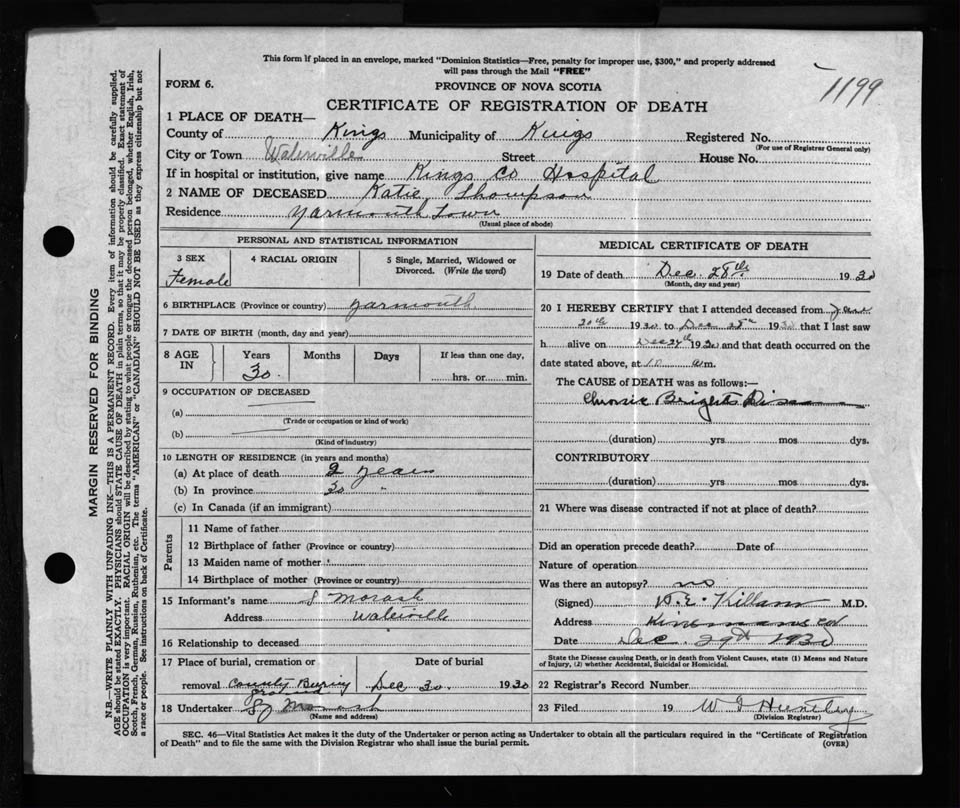 This form if placed in an envelope, marked "Dominion Statistics—Free, penalty for improper use, $300," and properly addressed
will pass through the Mail "FREE"
1199
FORM 6.
PROVINCE OF NOVA SCOTIA
CERTIFICATE OF REGISTRATION OF DEATH
1 PLACE OF DEATH—
County of Kings Municipality of Kings Registered No.
(For use of Registrar General only)
City or Town Waterville Street House No.
If in hospital or institution, give name Kings Co Hospital
2 NAME OF DECEASED Katie Thompson
Residence Yarmouth Town
(Usual place of abode)
PERSONAL AND STATISTICAL INFORMATION
3 SEX 4 RACIAL ORIGIN 5 Single, Married, Widowed or
Divorced. (Write the word)
Female
6 BIRTHPLACE (Province or country) Yarmouth
7 DATE OF BIRTH (month, day and year)
8 AGE IN Years Months Days If less than one day,
30 hrs. or min.
9 OCCUPATION OF DECEASED
(a)
(Trade or occupation or kind of work)
(b)
(Kind of industry)
10 LENGTH OF RESIDENCE (in years and months)
(a) At place of death 2 years
(b) In province 30 "
(c) In Canada (if an immigrant)
Parents
11 Name of father
12 Birthplace of father (Province or country)
13 Maiden name of mother
14 Birthplace of mother (Province or country)
15 Informant's name Morash
Address Waterville
16 Relationship to deceased
17 Place of burial, cremation or Date of burial
removal County Burying Dec 30 1930
18 Undertaker Morash
(Name and address)
MEDICAL CERTIFICATE OF DEATH
19 Date of death Dec. 28th 1930
(Month, day and year)
20 I HEREBY CERTIFY that I attended deceased from
20th 1930 to Dec 28th 1930 that I last saw
h alive on Dec 27th 1930 and that death occurred on the
date stated above, at 10 a.m.
The CAUSE OF DEATH was as follows:—
Chronic Brights Disease
(duration) yrs mos dys.
CONTRIBUTORY
(duration) yrs. mos. dys.
21 Where was disease contracted if not at place of death?
Did an operation precede death? Date of
Nature of operation
Was there an autopsy? no
(Signed) Killam M.D.
Address
Date Dec. 29th 1930
State the Disease causing Death, or in death from Violent Causes, state (1) Means and Nature
of Injury, (2) whether Accidental, Suicidal or Homicidal.
22 Registrar's Record Number
23 Filed 19 Huntley
(Division Registrar)
SEC. 46—Vital Statistics Act makes it the duty of the Undertaker or person acting as Undertaker to obtain all the particulars required in the "Certificate of Registration
of Death" and to file the same with the Division Registrar who shall issue the burial permit. (OVER)
MARGIN RESERVED FOR BINDING
N.B.—WRITE PLAINLY WITH UNFADING INK—THIS IS A PERMANENT RECORD. Every item of information should be carefully supplied.
AGE should be stated EXACTLY. PHYSICIANS should STATE CAUSE OF DEATH in plain terms, so that it may be properly classified. Exact statement of
OCCUPATION is very important. RACIAL ORIGIN will be described by stating to what people or tongue the deceased person belonged, whether English, Irish,
Scotch, French, German, Russian, Ruthenian, etc. The terms "AMERICAN" or "CANADIAN" SHOULD NOT BE USED as they express citizenship but not
a race or people. See instructions on back of Certificate.